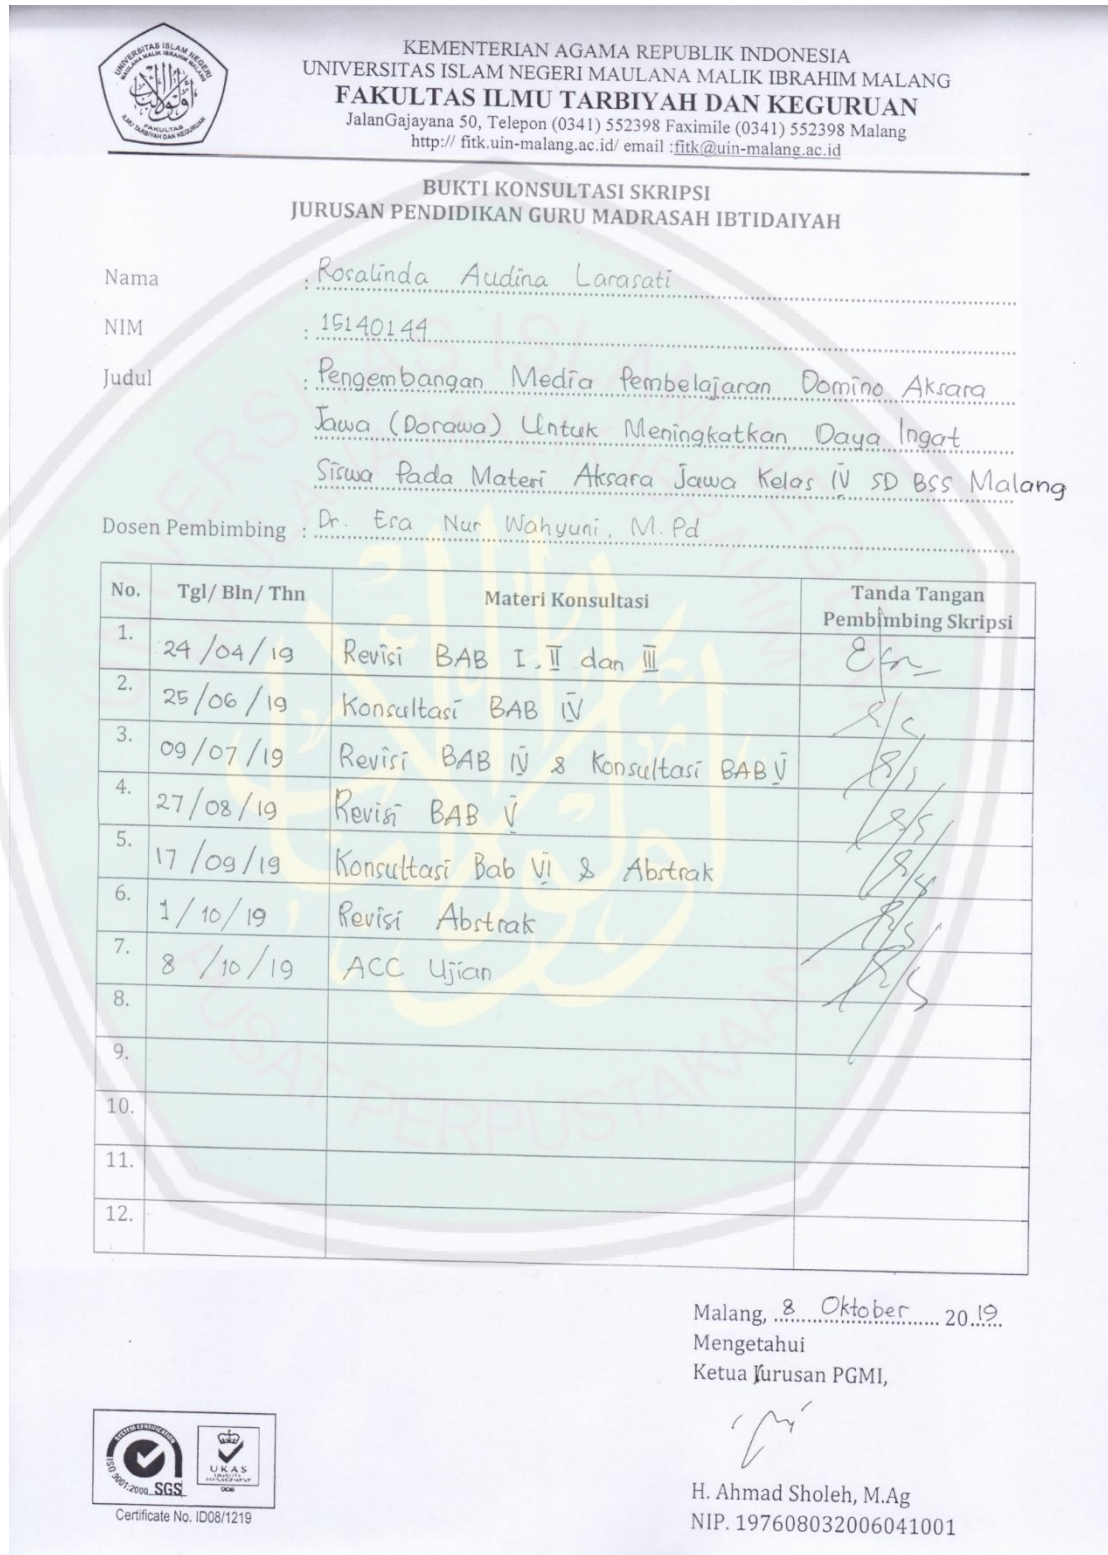 KEMENTERIAN AGAMA REPUBLIK INDONESIA
UNIVERSITAS ISLAM NEGERI MAULANA MALIK IBRAHIM MALANG
FAKULTAS ILMU TARBIYAH DAN KEGURUAN
JalanGajayana 50, Telepon (0341) 552398 Faximile (0341) 552398 Malang
http:// fitk.uin-malang.ac.id/ email :fitk@uin-malang.ac.id
BUKTI KONSULTASI SKRIPSI
JURUSAN PENDIDIKAN GURU MADRASAH IBTIDAIYAH
Nama : Rosalinda Audina Larasati
NIM : 15140144
Judul : Pengembangan Media Pembelajaran Domino Aksara
Jawa (Dorawa) Untuk Meningkatkan Daya Ingat
Siswa Pada Materi Aksara Jawa Kelas IV SD BSS Malang
Dosen Pembimbing : Dr. Esa Nur Wahyuni, M.Pd
No. Tgl/ Bln/ Thn Materi Konsultasi Tanda Tangan Pembimbing Skripsi
1. 24/04/19 Revisi BAB I, II dan III
2. 25/06/19 Konsultasi BAB IV
3. 09/07/19 Revisi BAB IV & Konsultasi BAB V
4. 27/08/19 Revisi BAB V
5. 17/09/19 Konsultasi Bab VI & Abstrak
6. 1/10/19 Revisi Abstrak
7. 8/10/19 ACC Ujian
8.
9.
10.
11.
12.
Malang, 8 Oktober 2019
Mengetahui
Ketua Jurusan PGMI,
H. Ahmad Sholeh, M.Ag
NIP. 197608032006041001
SYSTEM CERTIFICATION
ISO 9001:2000 SGS
UKAS
QUALITY
MANAGEMENT
005
Certificate No. ID08/1219